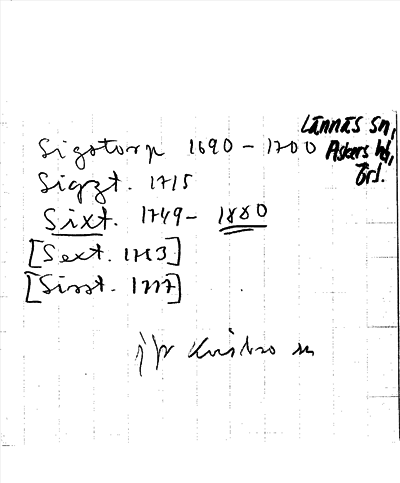 Lännäs sn,
Askers hd,
Örl.
Sigstorp 1690 - 1700
Sigzt. 1715
Sixt. 1749- 1880
[Sext. 1753]
[Sisst. 1777]